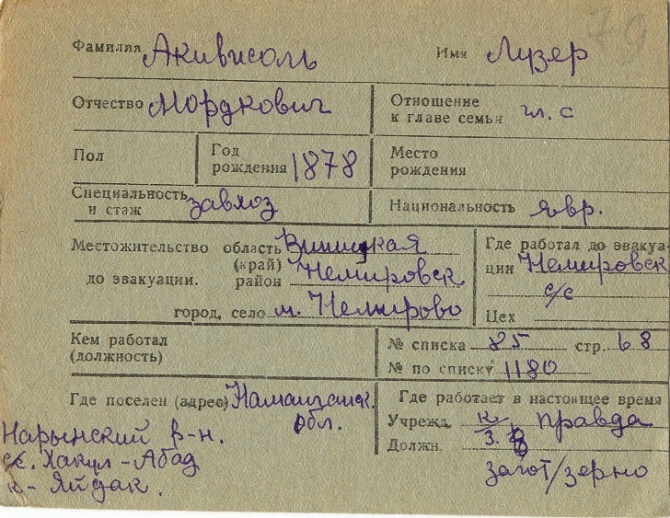 79
Фамилия Акивисоль Имя Лузер
Отчество Мордкович Отношение к главе семьи гл. с
Пол Год рождения 1878 Место рождения
Специальность и стаж завхоз Национальность явр.
Местожительство до эвакуации. область (край) Виницкая
район Немировск
город, село м. Немирово
Где работал до эвакуации Немировск
с/с
Цех
Кем работал (должность)
№ списка 85 стр. 68
№ по списку 1180
Где поселен (адрес) Наманганск.
обл.
Нарынский р-н.
с/с. Хакул-Абад
к- Яйдак.
Где работает в настоящее время
Учрежд. к. правда
Должн. з.
загот/зерно